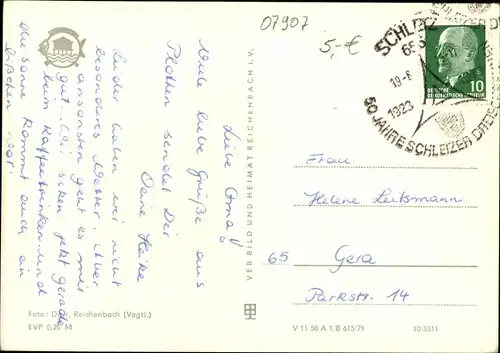 07907
5,-€
Liebe Oma!
Viele liebe Grüße aus
Plothen sendet Dir
Deine Heike
Leider haben wir nicht
besonderes Wetter. Aber
ansonsten geht es mir
gut. Wir sitzen jetzt gerade
beim Kaffeetrinken und
die Sonne kommt auch ein
bißchen vor.
Foto: Reichenbach (Vogtl.)
EVP 0,20 M
VEB BILD UND HEIMAT REICHENBACH I. V.
SCHLEIZ
50 JAHRE SCHLEIZER DREIECK
1923
DEUTSCHE
DEMOKRATISCHE REPUBLIK
10
Frau
Helene Leitsmann
65 Gera
Parkstr. 14
V 11 50 A 1/B 615/71 10/3311